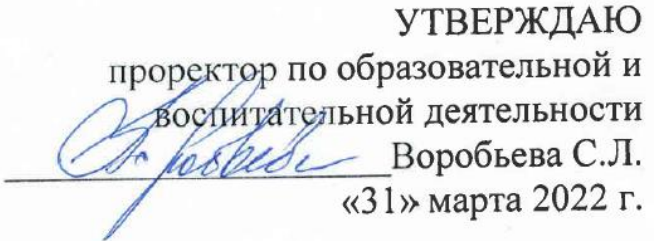 УТВЕРЖДАЮ
проректор по образовательной и
воспитательной деятельности
Воробьева С.Л.
«31» марта 2022 г.